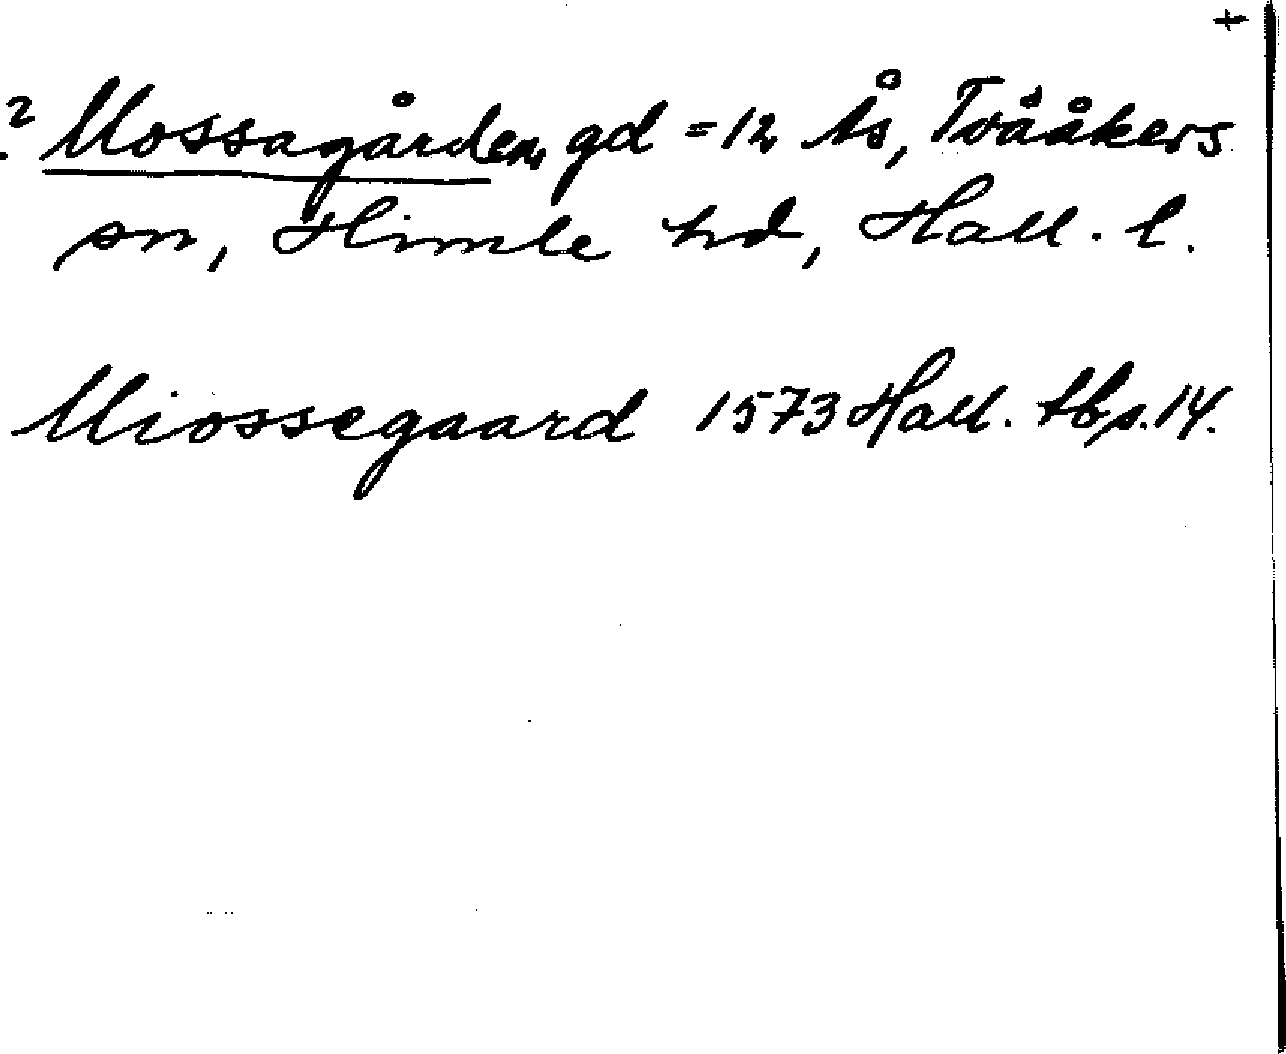 +
? Mossagården, gd = 12 Ås, Tvååkers
sn, Himle hd, Hall. l.
Miossegaard 1573 Hall. tb s. 14.